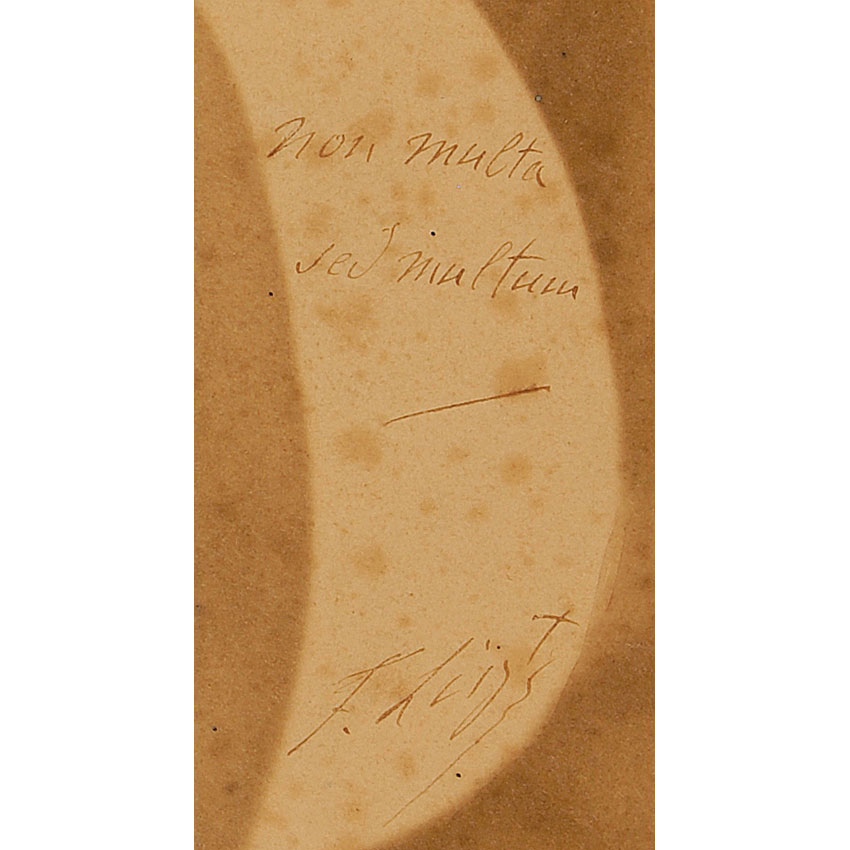 non multa
sed multum
F. Liszt